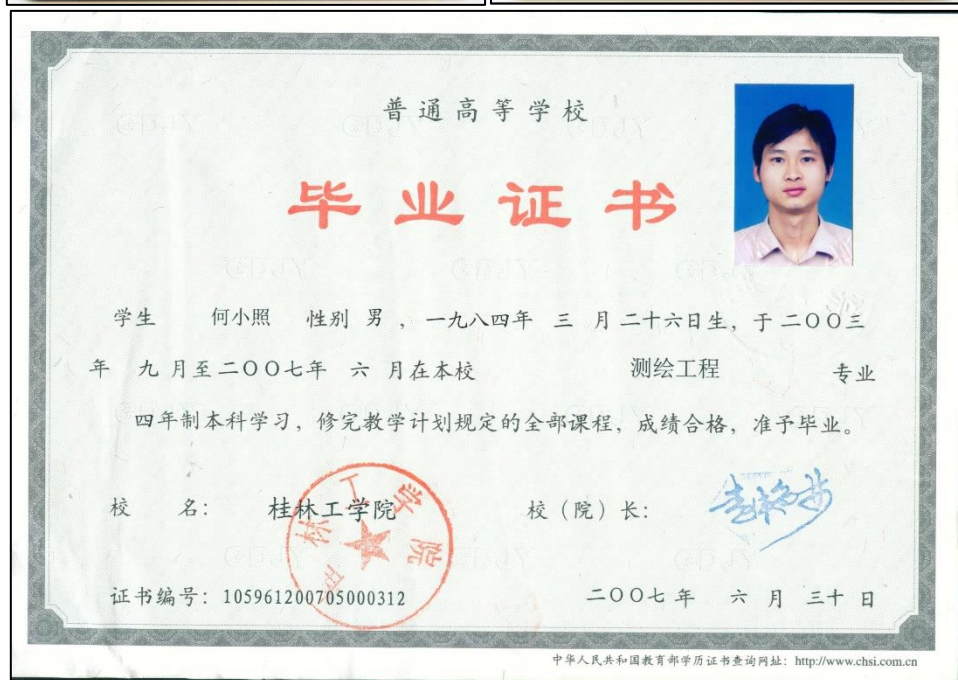 普通高等学校
毕业证书
学生 何小照 性别 男 ，一九八四年 三 月 二十六日生，于 二〇〇三
年 九 月至 二〇〇七年 六 月在本校 测绘工程 专业
四年制本科学习，修完教学计划规定的全部课程，成绩合格，准予毕业。
校 名： 桂林工学院 校（院）长：
桂林工学院
证书编号：105961200705000312 二〇〇七 年 六 月 三十 日
中华人民共和国教育部学历证书查询网址：http://www.chsi.com.cn